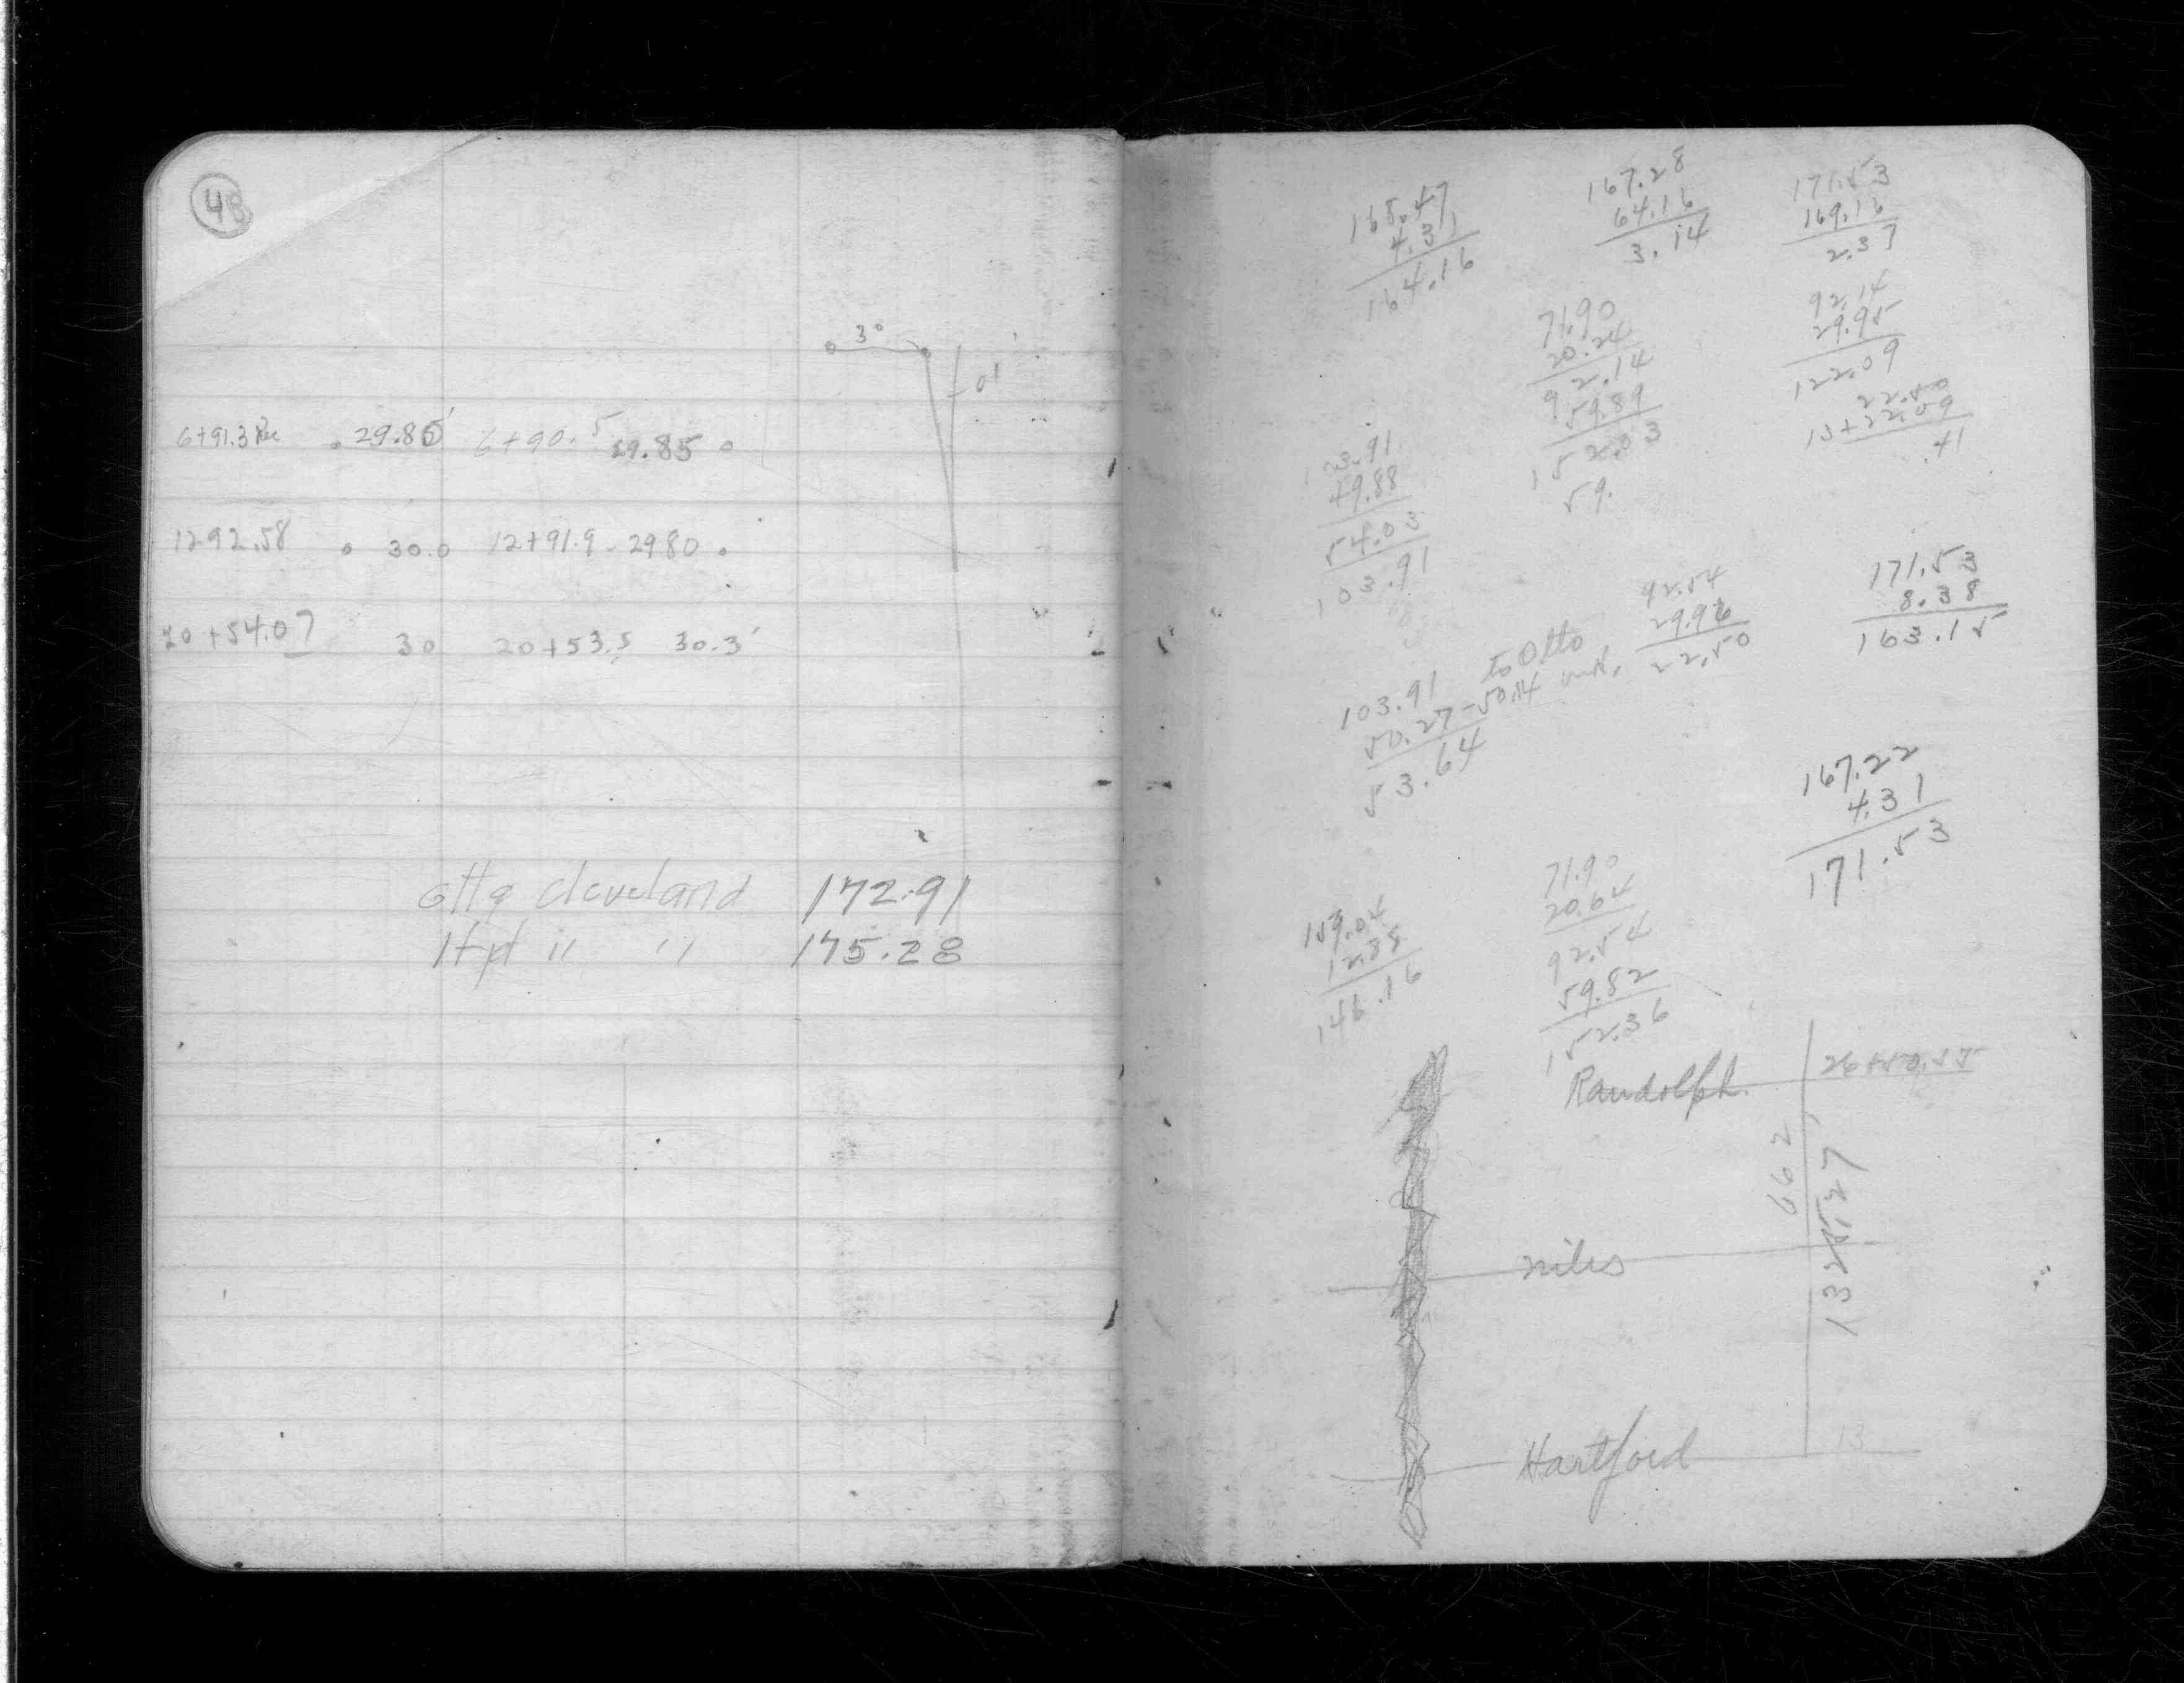 48
3°
01
6+91.3 Rec 29.85' 6+90.5 29.85
1292.58 30.0 12+91.9 2980
20+54.07 30 20+53.5 30.3'
cleveland 172.91
" " 175.28
168.47
4.31
164.16
167.28
64.16
3.14
171.53
169.16
2.37
71.90
20.24
92.14
59.89
152.03
59.
92.14
29.95
122.09
22.50
13+22.09
.41
103.91
49.88
54.03
103.91
92.54
29.96
22.50
171.53
8.38
163.15
to Otto
103.91
50.27-50.14
53.64
167.22
4.31
171.53
159.04
12.88
146.16
71.90
20.64
92.54
59.82
152.36
Randolph
26+50.55
662
niles
Hartford
13